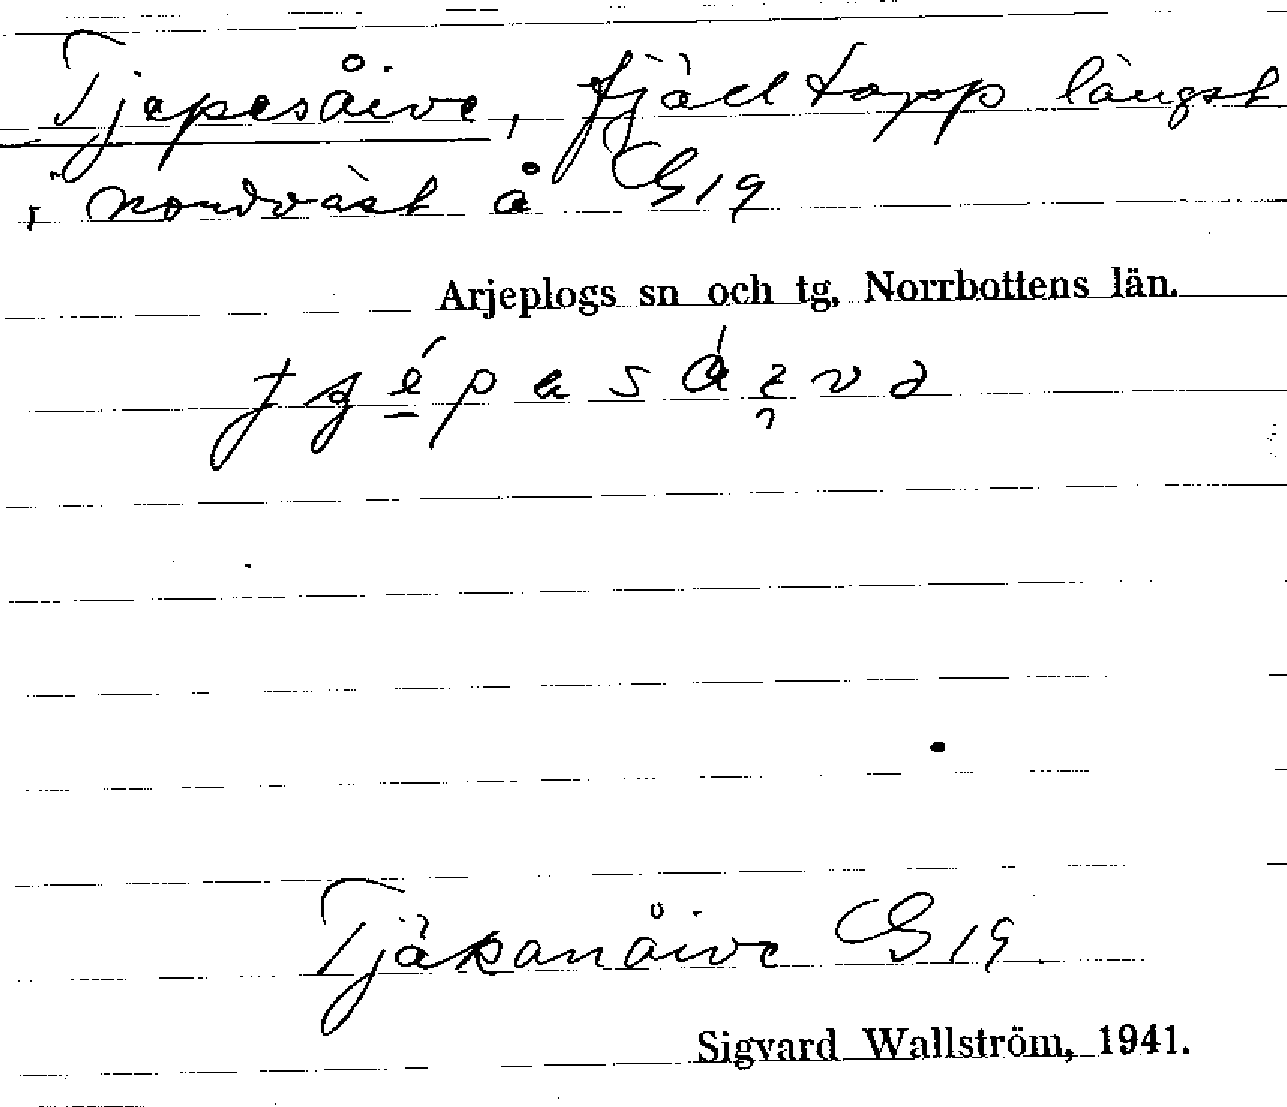 Tjepesåive, fjälltopp längst
i nordväst å G 19
Arjeplogs sn och tg, Norrbottens län.
Tjäkanåive G 19
Sigvard Wallström, 1941.